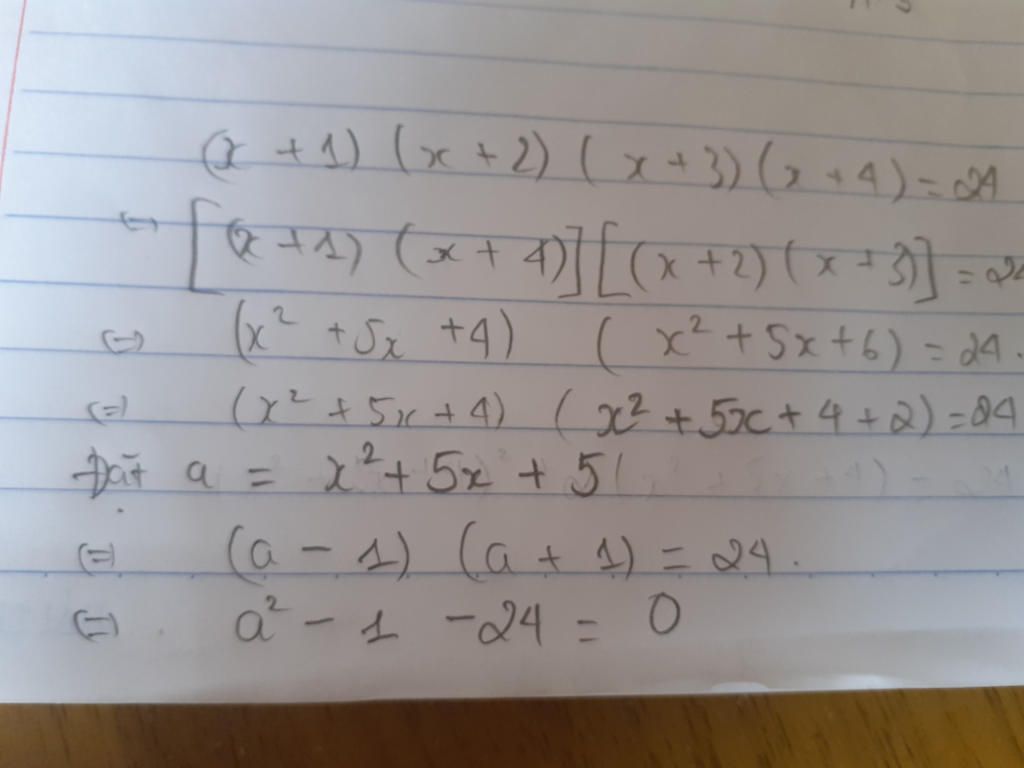 (x + 1) (x + 2) ( x + 3) (x + 4) = 24
⇔ [(x + 1) (x + 4)] [(x + 2) ( x + 3)] = 24
⇔ (x² + 5x + 4) ( x² + 5x + 6) = 24.
⇔ (x² + 5x + 4) ( x² + 5x + 4 + 2) = 24
Đặt a = x² + 5x + 5
⇔ (a - 1) (a + 1) = 24.
⇔ a² - 1 - 24 = 0